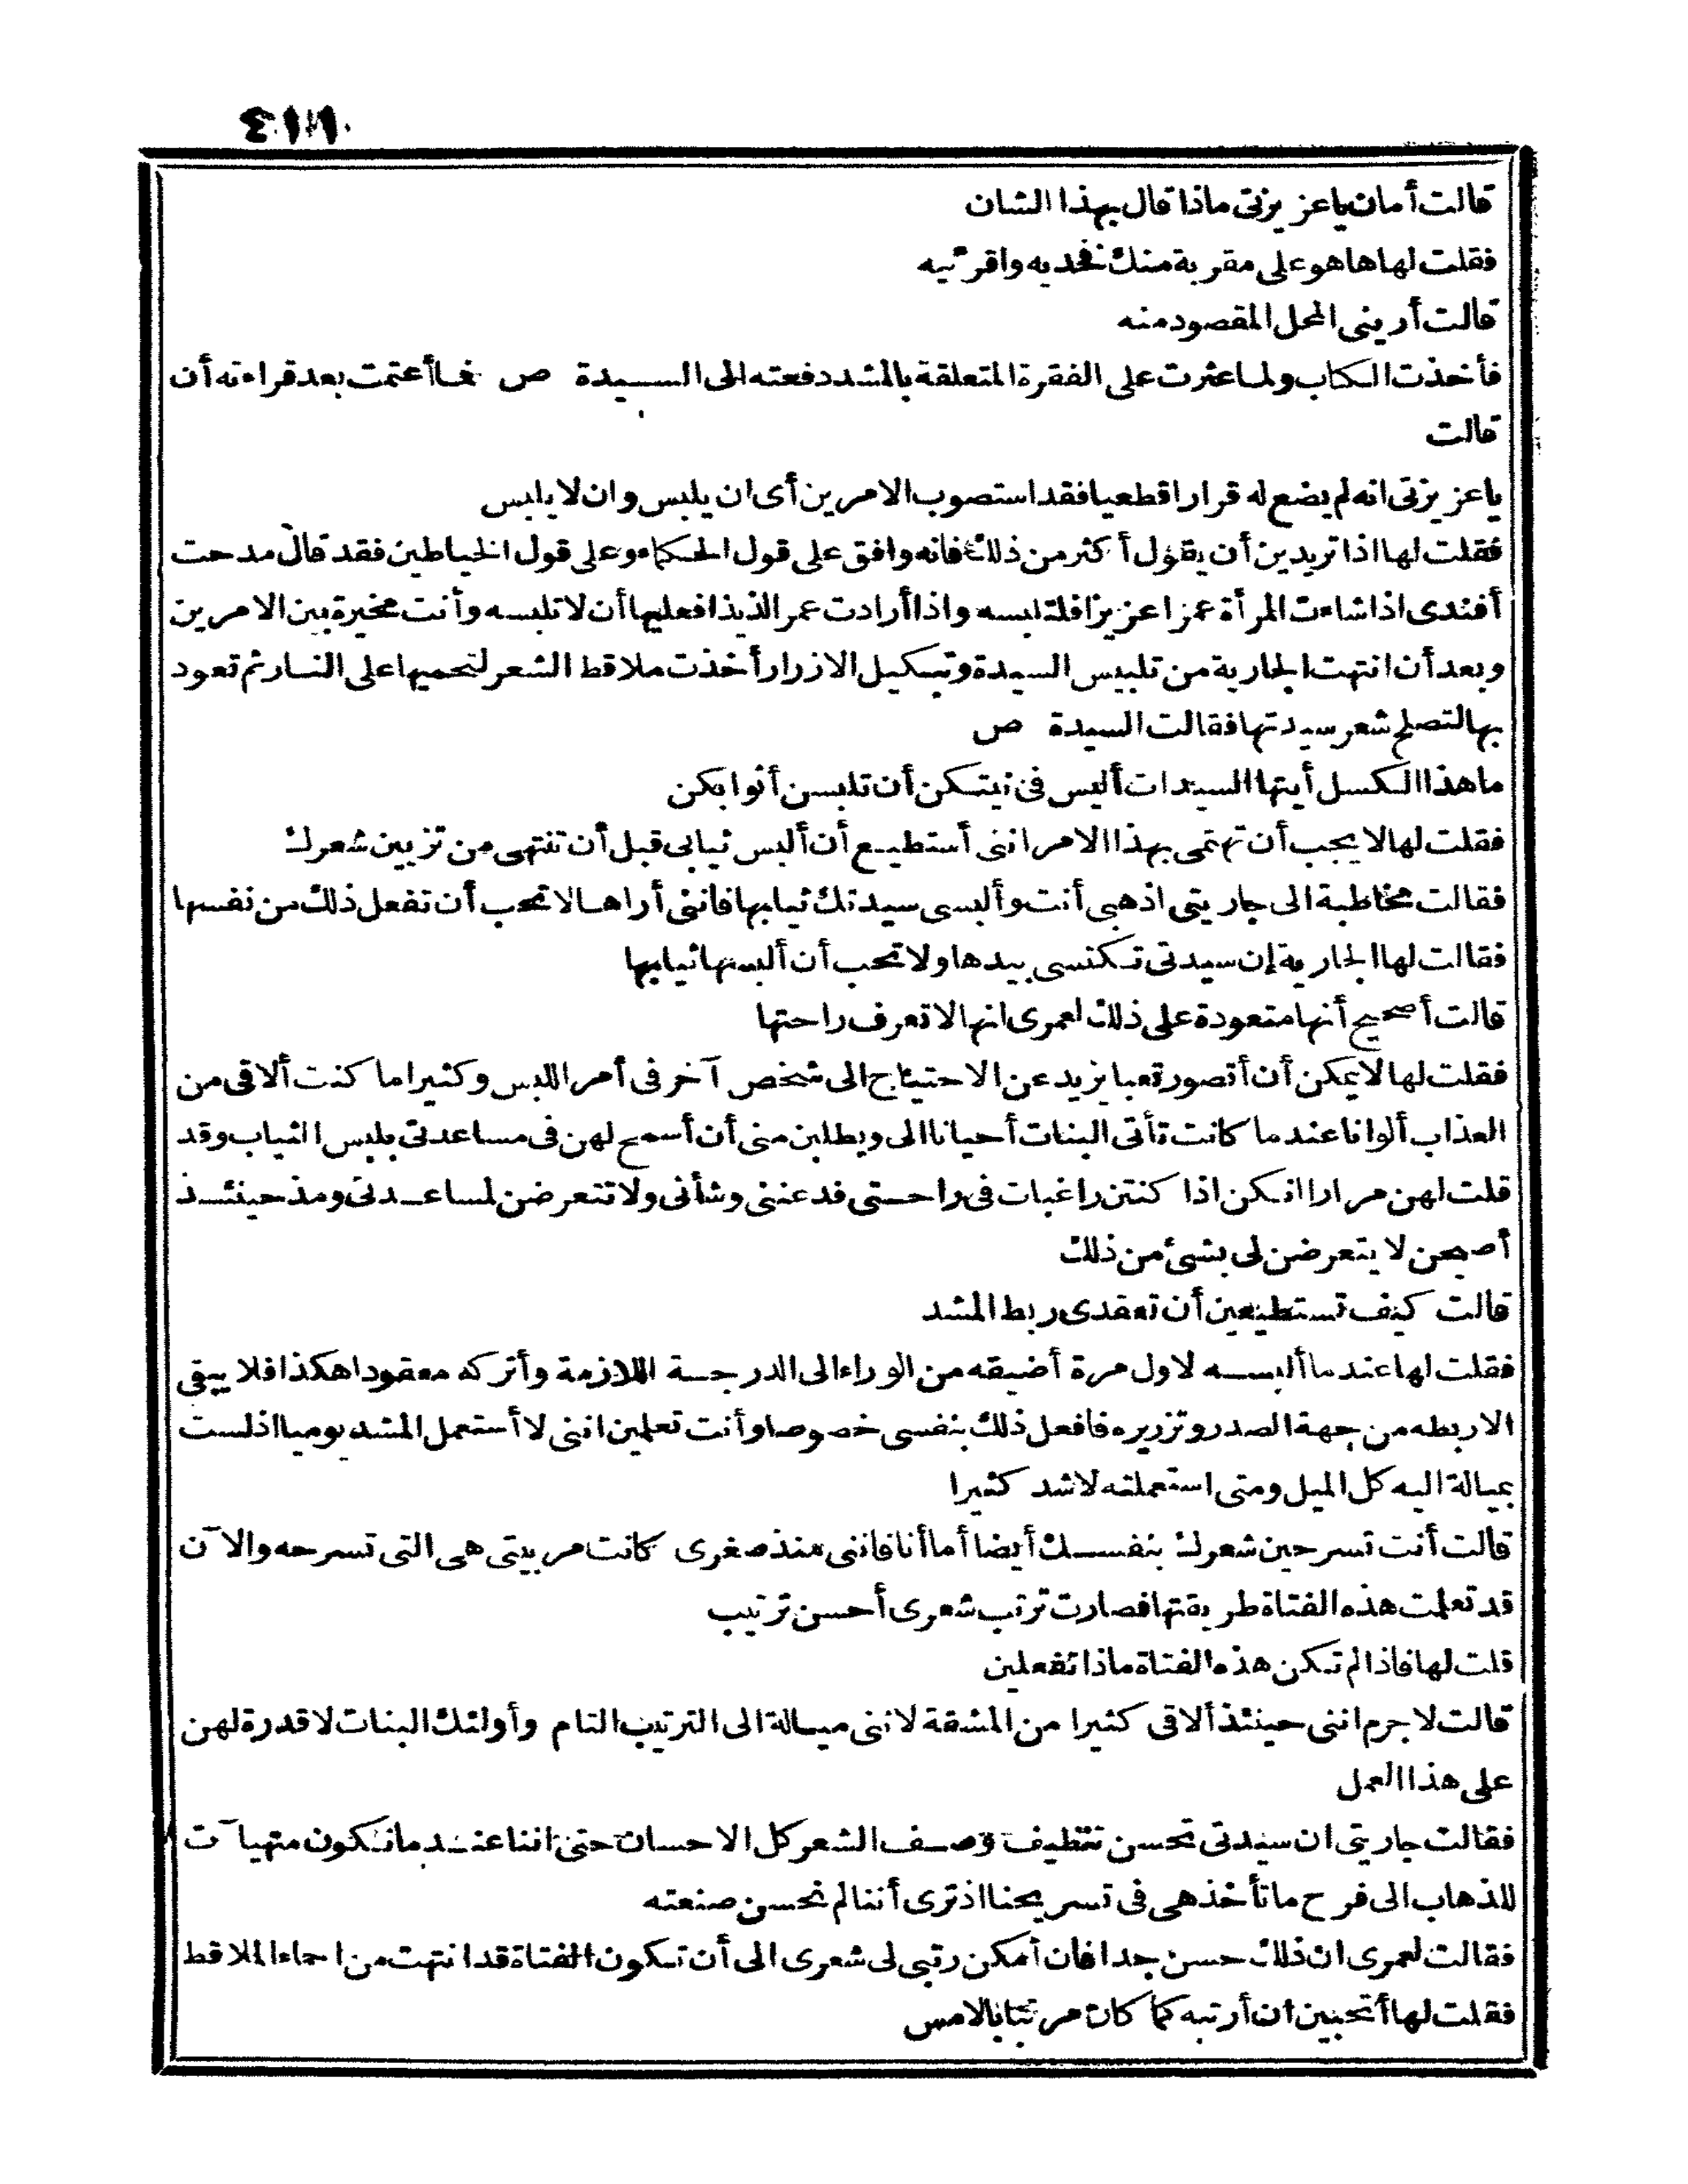 قالت أمان ياعزيزتى ماذا قال بهذا الشان
فقلت لها ها هو على مقربة منك فخديه واقرئيه
قالت أرينى المحل المقصود منه
فأخذت الكتاب ولما عثرت على الفقرة المتعلقة بالمشد دفعته الى السيدة ص فما أعتمت بعد قراءته أن
قالت
ياعزيزتى انه لم يضع له قرارا قطعيا فقد استصوب الامرين أى ان يلبس وان لا يلبس
فقلت لها اذا تريدين أن يقول أكثر من ذلك فانه وافق على قول الحكماء وعلى قول الخياطين فقد قال مدحت
أفندى اذا شاءت المرأة عمزا عزيزا فلتلبسه واذا أرادت عمر الذيذا فعليها أن لا تلبسه وأنت مخيرة بين الامرين
وبعد أن انتهت الجارية من تلبيس السيدة وتبكيل الازرار أخذت ملاقط الشعر لتحميها على النار ثم تعود
بها لتصلح شعر سيدتها فقالت السيدة ص
ما هذا الكسل أيتها السيدات أليس فى نيتكن أن تلبسن أثوابكن
فقلت لها لا يجب أن تهتمى بهذا الامر اننى أستطيع أن ألبس ثيابى قبل أن تنتهى من تزيين شعرك
فقالت مخاطبة الى جاريتى اذهبى أنت وألبسى سيدتك ثيابها فاننى أراها لا تحب أن تفعل ذلك من نفسها
فقالت لها الجارية إن سيدتى تكتسى بيدها ولا تحب أن ألبسها ثيابها
قالت أصحيح أنها متعودة على ذلك لعمرى انها لا تعرف راحتها
فقلت لها لا يمكن أن أتصور تعبا يزيد عن الاحتياج الى شخص آخر فى أمر اللبس وكثيرا ما كنت ألاقى من
العذاب ألوانا عندما كانت تأتى البنات أحيانا الى ويطلبن منى أن أسمح لهن فى مساعدتى بلبس الثياب وقد
قلت لهن مرارا انكن اذا كنتن راغبات فى راحتى فدعننى وشأنى ولا تتعرضن لمساعدتى ومذ حينئذ
أصبحن لا يتعرضن لى بشئ من ذلك
قالت كيف تستطيعين أن تعقدى ربط المشد
فقلت لها عندما ألبسه لاول مرة أضيقه من الوراء الى الدرجة اللازمة وأتركه معقودا هكذا فلا يبقى
الا ربطه من جهة الصدر وتزريره فافعل ذلك بنفسى خصوصا وأنت تعلمين اننى لا أستعمل المشد يوميا اذ لست
بميالة اليه كل الميل ومتى استعملته لا شد كثيرا
قالت أنت تسرحين شعرك بنفسك أيضا أما أنا فاننى منذ صغرى كانت مربيتى هى التى تسرحه والآن
قد تعلمت هذه الفتاة طريقتها فصارت ترتب شعرى أحسن ترتيب
قلت لها فاذا لم تكن هذه الفتاة ماذا تفعلين
قالت لا جرم اننى حينئذ ألاقى كثيرا من المشقة لاننى ميالة الى الترتيب التام وأولئك البنات لا قدرة لهن
على هذا العمل
فقالت جاريتى ان سيدتى تحسن تنظيف وصف الشعر كل الاحسان حتى اننا عندما نكون متهيآت
للذهاب الى فرح ما تأخذ هى فى تسريحنا اذ ترى أننا لم نحسن صنعته
فقالت لعمرى ان ذلك حسن جدا فان أمكن رتبى لى شعرى الى أن تكون الفتاة قد انتهت من احماء الملاقط
فقلت لها أتحبين ان أرتبه كما كان مرتبا بالامس